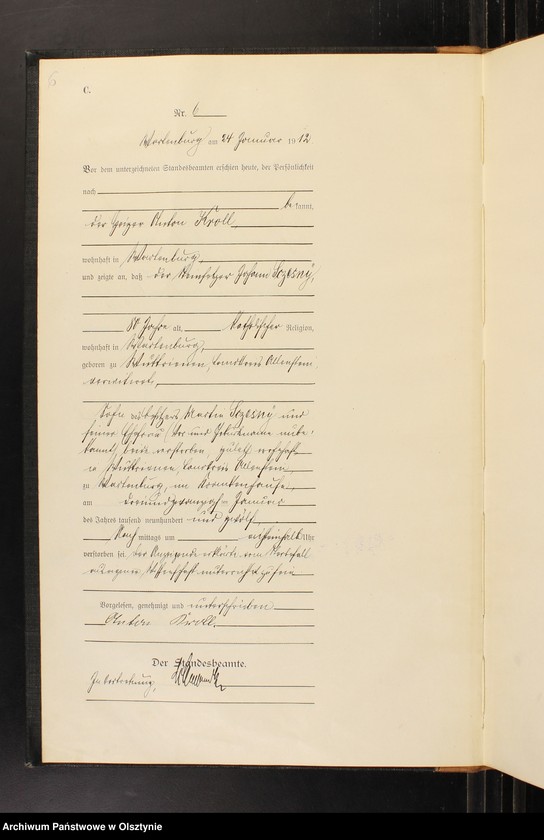 6
C.
Nr. 6
Wartenburg am 24 Januar 1912.
Vor dem unterzeichneten Standesbeamten erschien heute, der Persönlichkeit
nach
be kannt,
der Geiger Anton Kroll
wohnhaft in Wartenburg
und zeigte an, daß der Rentengutsbesitzer Johann Szesny,
80 Jahre alt, katholischer Religion,
wohnhaft in Wartenburg,
geboren zu Wuttrienen, Landkreis Allenstein,
verwitwet,
Sohn des Besitzers Martin Szesny und
seiner Ehefrau (Vor und Geburtsname unbe-
kannt) beide verstorben, zuletzt wohnhaft
in Wuttrienen, Landkreis Allenstein
zu Wartenburg, im Krankenhause,
am dreiundzwanzigsten Januar
des Jahres tausend neunhundert und zwölf
Nach mittags um Uhr
verstorben sei. Der Anzeigende erklärte, vom Sterbefall
aus eigener Wissenschaft unterrichtet zu sein
Vorgelesen, genehmigt und unterschrieben
Anton Kroll.
Der Standesbeamte.
In Vertretung,
Archiwum Państwowe w Olsztynie